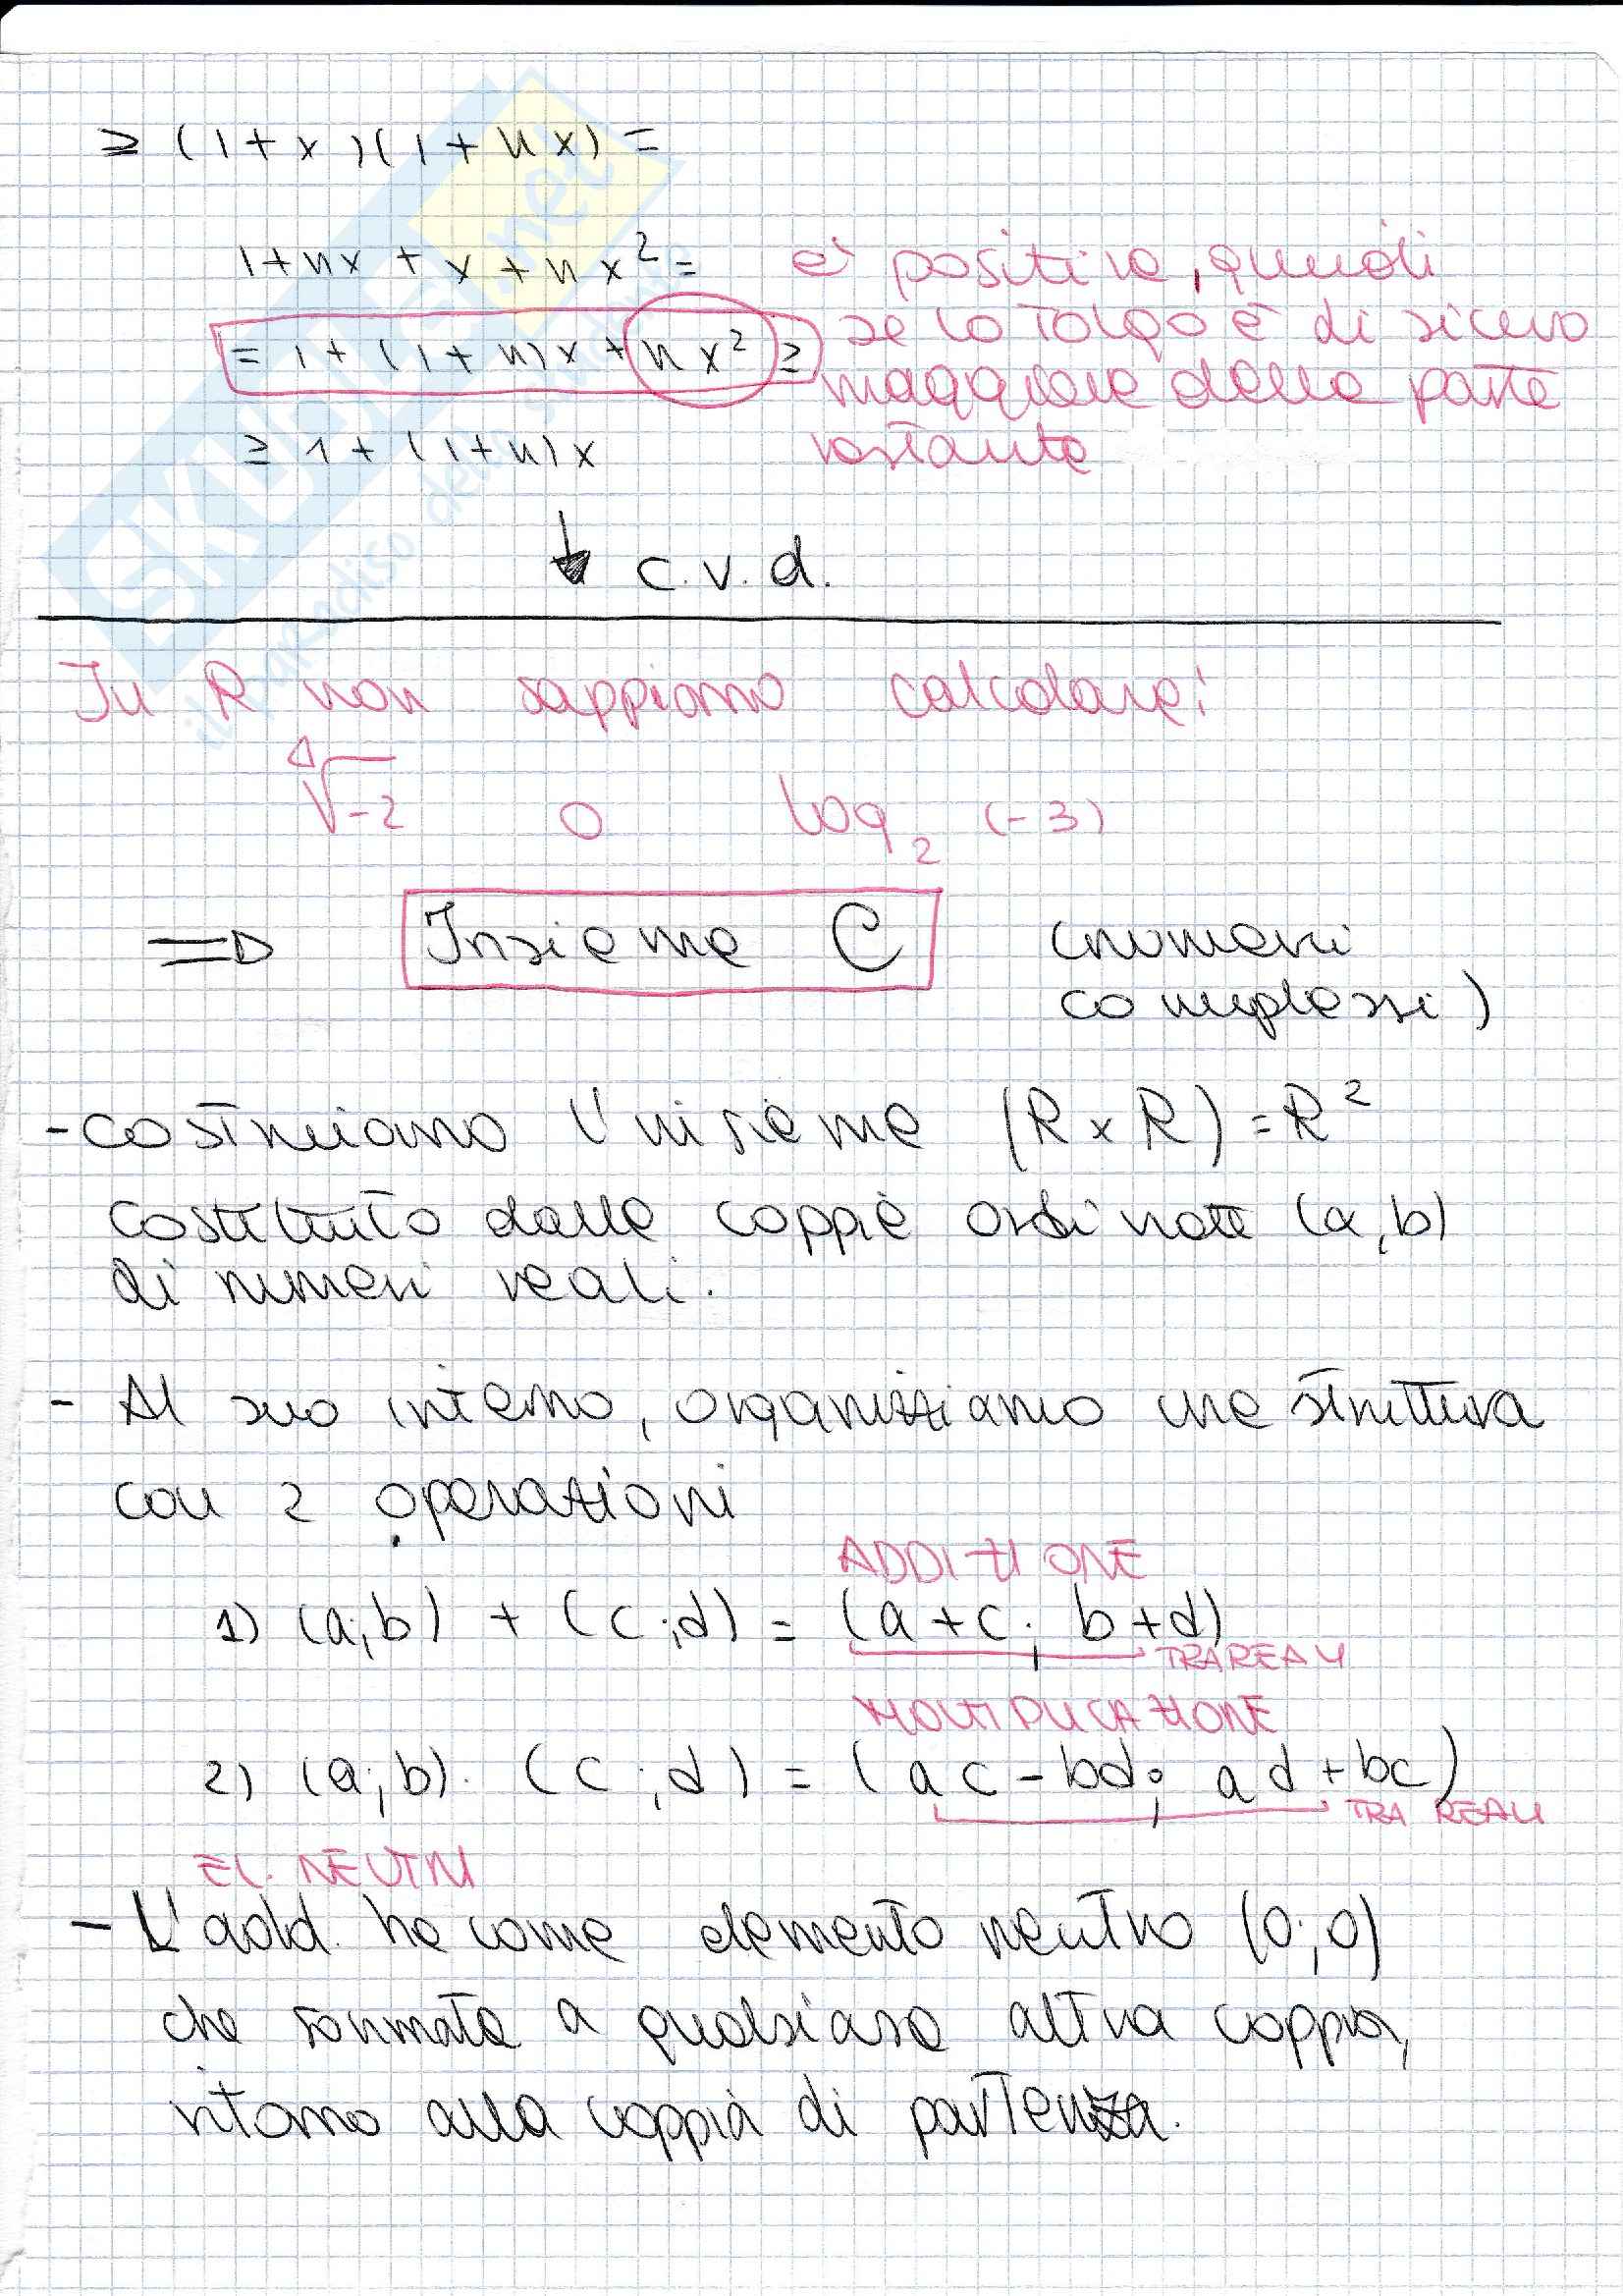 ≥ (1+x)(1+nx) =
1+nx + x + nx² =
è positivo, quindi
= 1 + (1+n)x + nx² ≥
se lo tolgo è di sicuro
maggiore della parte
≥ 1 + (1+n)x
restante
c.v.d.
In R non sappiamo calcolare:
⁴√-2 o log₂ (-3)
=> Insieme C (numeri
complessi)
- costruiamo l'insieme (R x R) = R²
costituito dalle coppie ordinate (a,b)
di numeri reali.
- Al suo interno, organizziamo una struttura
con 2 operazioni
ADDIZIONE
1) (a;b) + (c;d) = (a+c; b+d)
TRA REALI
MOLTIPLICAZIONE
2) (a;b) · (c;d) = (ac-bd; ad+bc)
TRA REALI
EL. NEUTRI
- L'add. ha come elemento neutro (0;0)
che sommata a qualsiasi altra coppia,
ritorno alla coppia di partenza.
SKUOLA.net
il paradiso dello studente